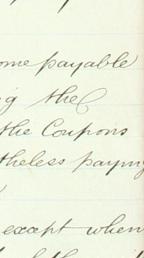 ome payable
g the
the Coupons
theless paying
except when